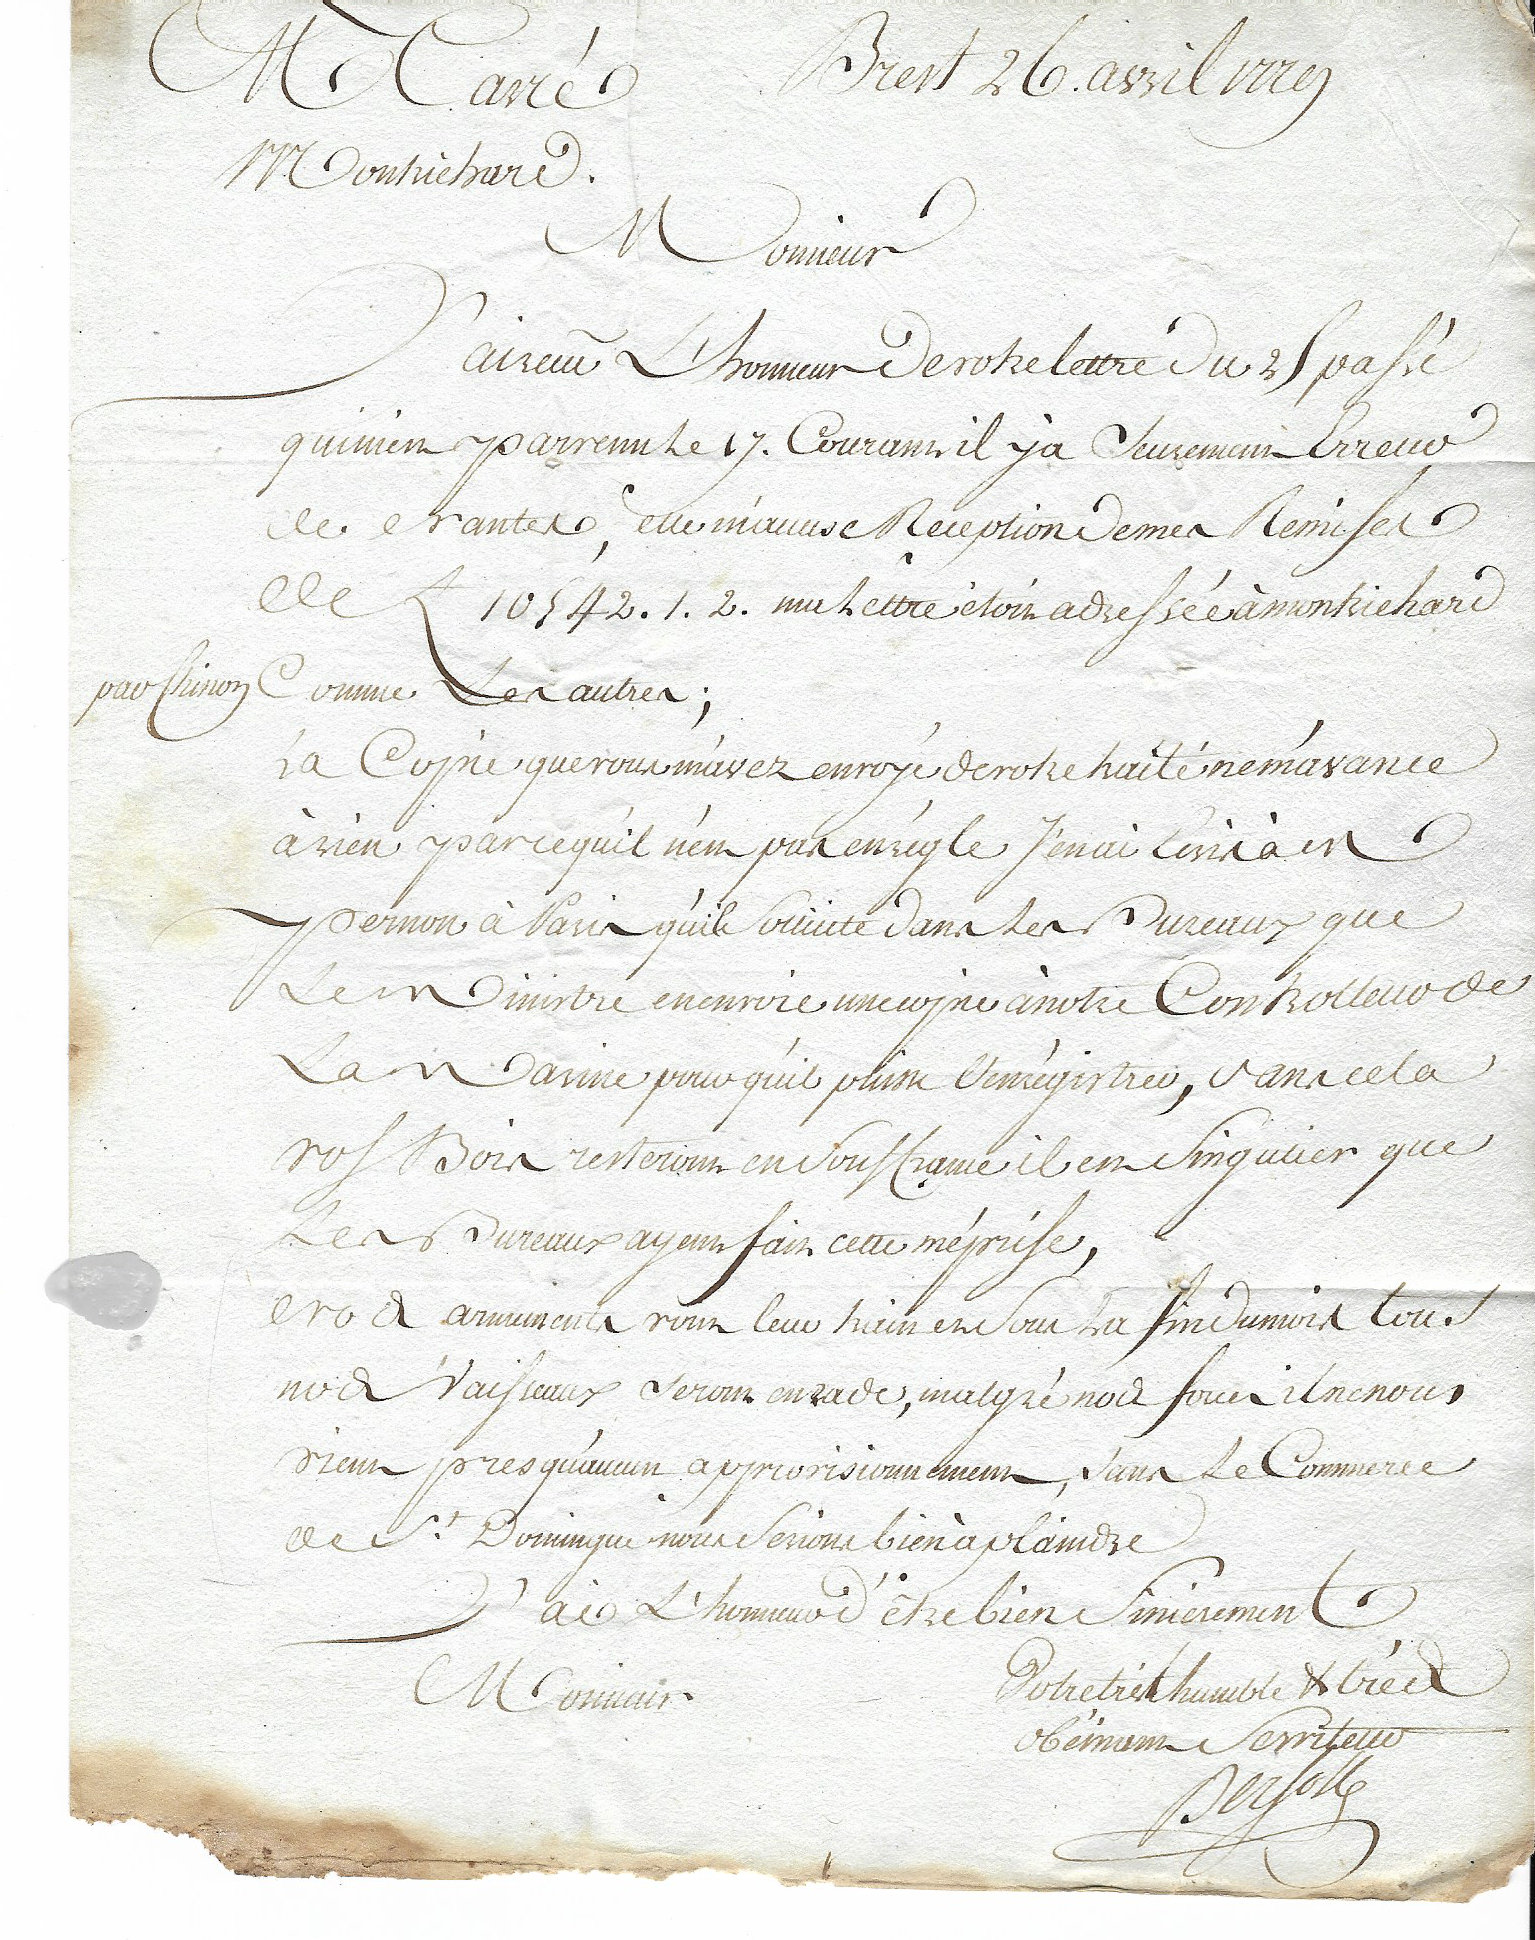 M Carré Brest 26. avril 1779
Montrichard.
Monsieur
J'ai recu L'honneur de votre lettre du 25 passé
qui m'est parvenu le 17. Courant il y a seurement Erreur
de dattes, elle m'accuse Reception de mes Remises
de £ 10542.1.2. ma Lettre étoit adressée à montrichard
par Chinon Comme Les autres;
La Copie que vous m'avez envoyé de votre traité ne m'avance
à rien parce qu'il n'est pas en régle J'en ai écris à M
Pernon à Paris qu'il sollicite dans Les Bureaux que
Le Ministre en envoie une copie à notre Controlleur de
La Marine pour qu'il puisse l'enrégistrer, sans cela
vos Bois resteront en il est singulier que
Les Bureaux ayent fait cette méprise,
Nos armements vont leur train et sous La fin du mois tous
nos Vaisseaux seront en rade, malgré nos forces il ne nous
vient presqu'aucun approvisionnement, sans Le Commerce
de St. Domingue nous serions bien à plaindre
J'ai L'honneur d'être bien Sincerement
Monsieur Votre très humble & très
obéissant Serviteur